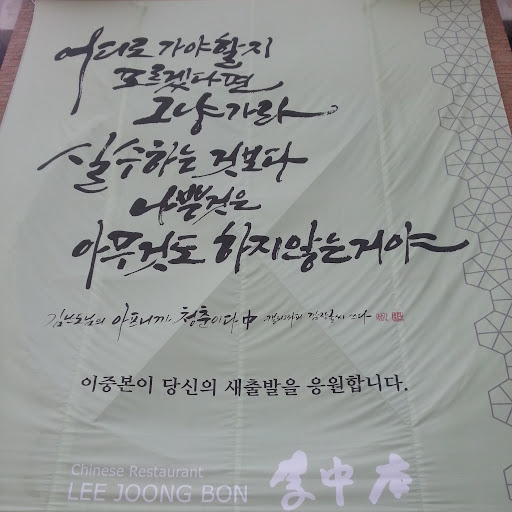 어디로 가야할지
모르겠다면
그냥가라
실수하는 것보다
나쁜것은
아무것도 하지않는거야
아프니까 청춘이다 中
이중본이 당신의 새출발을 응원합니다.
Chinese Restaurant
LEE JOONG BON 李中本